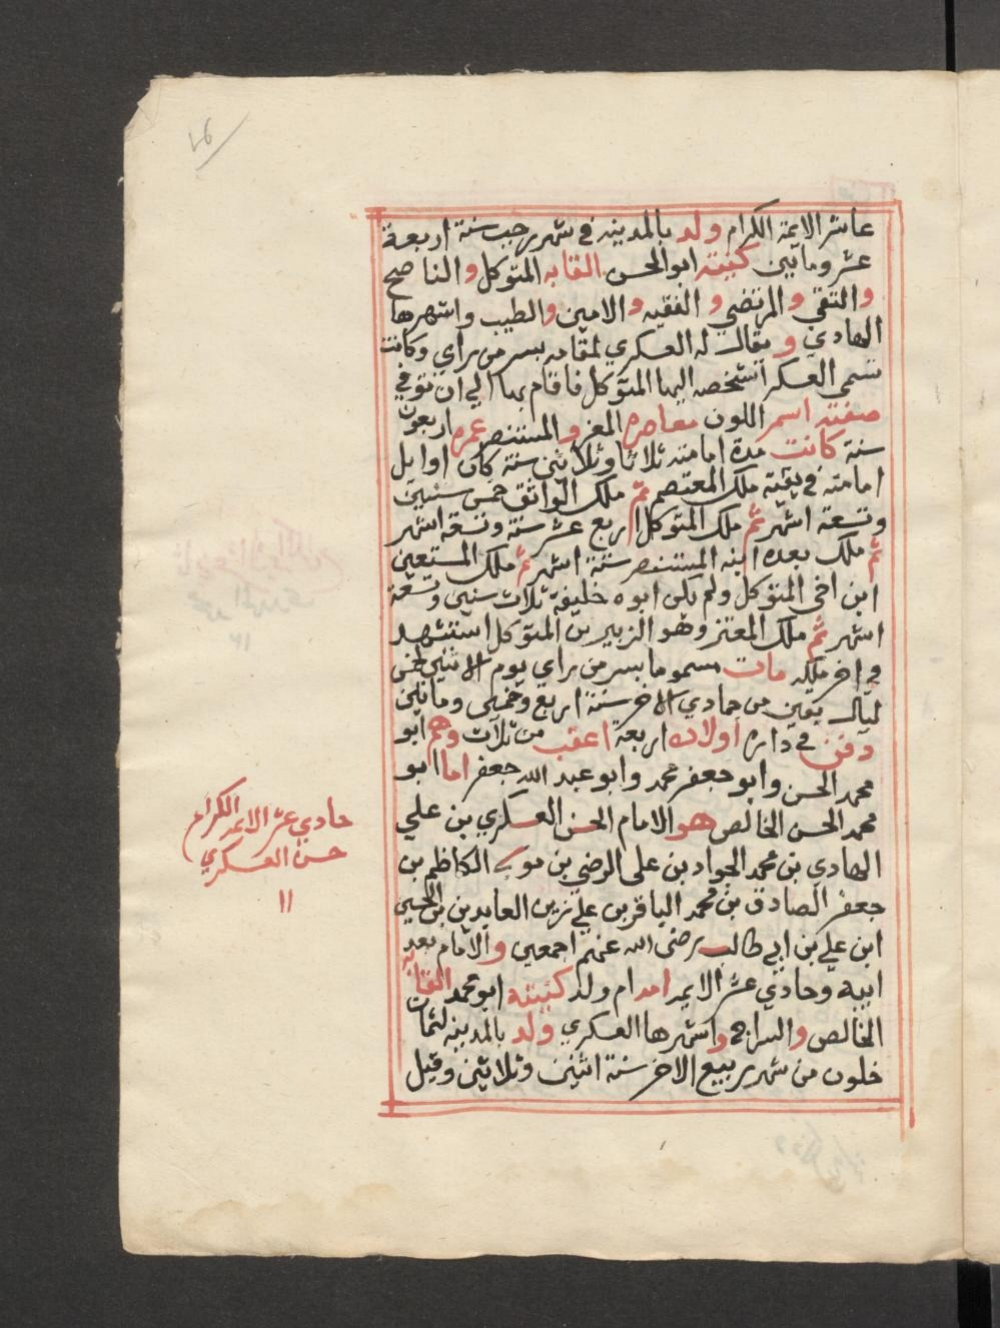 عاشر الائمة الكرام ولد بالمدينه في شهر رجب سنة اربعة
عشر ومايتين كنيته ابو الحسن القابه المتوكل والناصح
والتقي والمرتضي والفقيه والامين والطيب واشهرها
الهادي ويقال له العسكري لمقامه بسر من راي وكانت
تسمى العسكر اشخصه اليها المتوكل فاقام بها الي ان توفي
صفته اسمر اللون معاصره المعز والمستنصر عمره اربعون
سنة كانت مدة امامته ثلاثا وثلاثين سنة كان اوايل
امامته في بقية ملك المعتصم ثم ملك الواثق خمس سنين
وتسعة اشهر ثم ملك المتوكل اربع عشر سنة وتسعة اشهر
ثم ملك بعده ابنه المستنصر ستة اشهر ثم ملك المستعين
ابن اخي المتوكل ولم يكن ابوه خليفة ثلاث سنين وتسعة
اشهر ثم ملك المعتز وهو الزبير بن المتوكل استشهد
في اخر ملكه مات مسموما بسر من راي يوم الاثنين لخمس
ليال بقين من جمادي الاخر سنة اربع وخمسين ومائتين
دفن في داره اولاده اربعة اعقب من ثلاث وهم ابو
محمد الحسن وابو جعفر محمد وابو عبد الله جعفر اما ابو
محمد الحسن الخالص هو الامام الحسن العسكري بن علي
الهادي بن محمد الجواد بن على الرضي بن موسى الكاظم بن
جعفر الصادق بن محمد الباقر بن علي زين العابدين بن الحسين
ابن علي بن ابي طالب رضى الله عنهم اجمعين والامام بعد
ابيه وحادي عشر الايمه امه ام ولد كنيته ابو محمد القابه
الخالص والسراج واشهرها العسكري ولد بالمدينه لثمان
خلون من شهر ربيع الاخر سنة اثنين وثلاثين وقيل
حادي عشر الايمه الكرام
حسن العسكري
١١